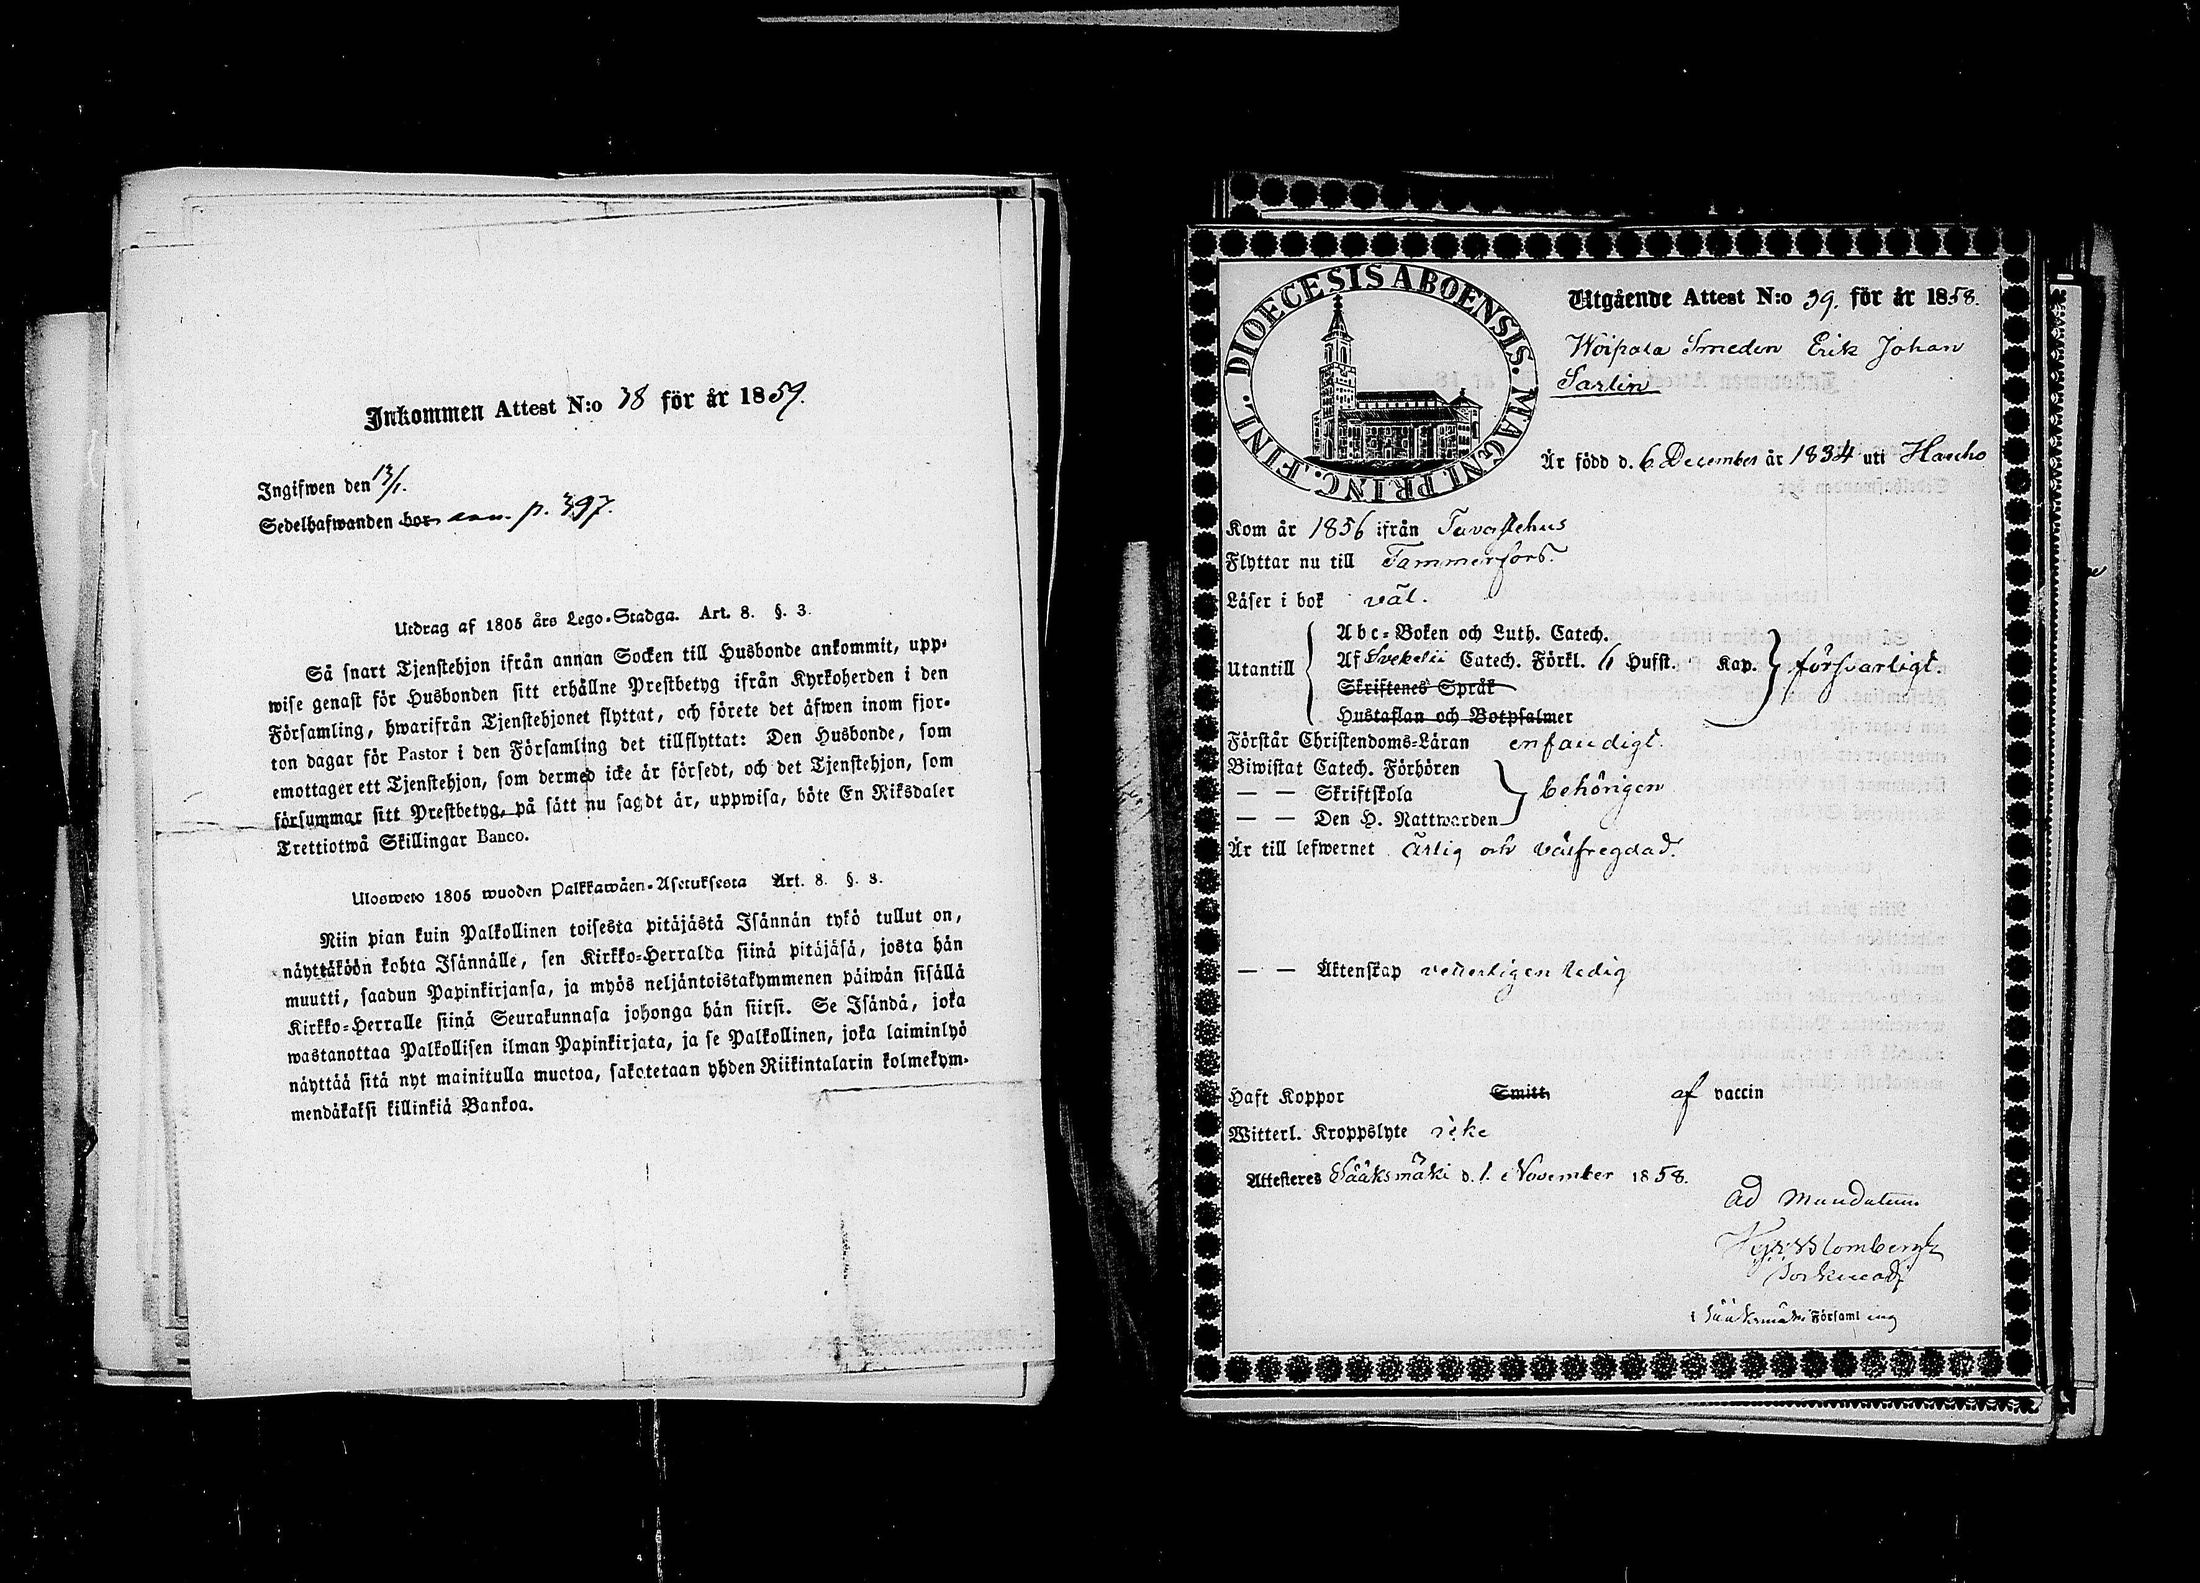 Inkommen Attest N:o 38 för år 1859.
Ingifwen den 13/1.
Sedelhafwanden bor p. 397.
Utdrag af 1805 års Lego-Stadga. Art. 8. §. 3.
Så snart Tjenstehjon ifrån annan Socken till Husbonde ankommit, upp-
wise genast för Husbonden sitt erhållne Prestbetyg ifrån Kyrkoherden i den
Församling, hwarifrån Tjenstehjonet flyttat, och förete det äfwen inom fjor-
ton dagar för Pastor i den Församling det tillflyttat: Den Husbonde, som
emottager ett Tjenstehjon, som dermed icke är försedt, och det Tjenstehjon, som
försummar sitt Prestbetyg, på sätt nu sagdt är, uppwisa, böte En Riksdaler
Trettiotwå Skillingar Banco.
Ulosweto 1805 wuoden Palkkawäen-Asetuksesta Art. 8. §. 3.
Niin pian kuin Palkollinen toisesta pitäjästä Isännän tykö tullut on,
näyttäköön kohta Isännälle, sen Kirkko-Herralda siinä pitäjäsä, josta hän
muutti, saadun Papinkirjansa, ja myös neljäntoistakymmenen päiwän sisällä
Kirkko-Herralle siinä Seurakunnasa johonga hän siirsi. Se Isändä, joka
wastanottaa Palkollisen ilman Papinkirjata, ja se Palkollinen, joka laiminlyö
näyttää sitä nyt mainitulla muotoa, sakotetaan yhden Riikintalarin kolmekym-
mendäkaksi killinkiä Bankoa.
DIOECESIS ABOENSIS. MAGNI PRINC. FINL.
Utgående Attest N:o 39. för år 1858.
Woipala Smeden Erik Johan
Sarlin
Är född d. 6 December år 1834 uti Haucho
Kom år 1856 ifrån Tavastehus
Flyttar nu till Tammerfors.
Läser i bok väl.
Abc-Boken och Luth. Catech.
Utantill Af Svebelii Catech. Förkl. 6 Hufst. Kap. försvarligt.
Skriftenes Språk
Hustaflan och Botpsalmer
Förstår Christendoms-Läran enfaudigt.
Biwistat Catech. Förhören
— — Skriftskola behörigen
— — Den H. Nattwarden
Är till lefwernet ärlig och välfregdad.
— — Äktenskap veterligen ledig
Haft Koppor Smitt af vaccin
Witterl. Kroppslyte icke
Attesteres Sääksmäki d. 1. November 1858.
Ad Mandatum
Blombergh
i Sääksmäki Församling